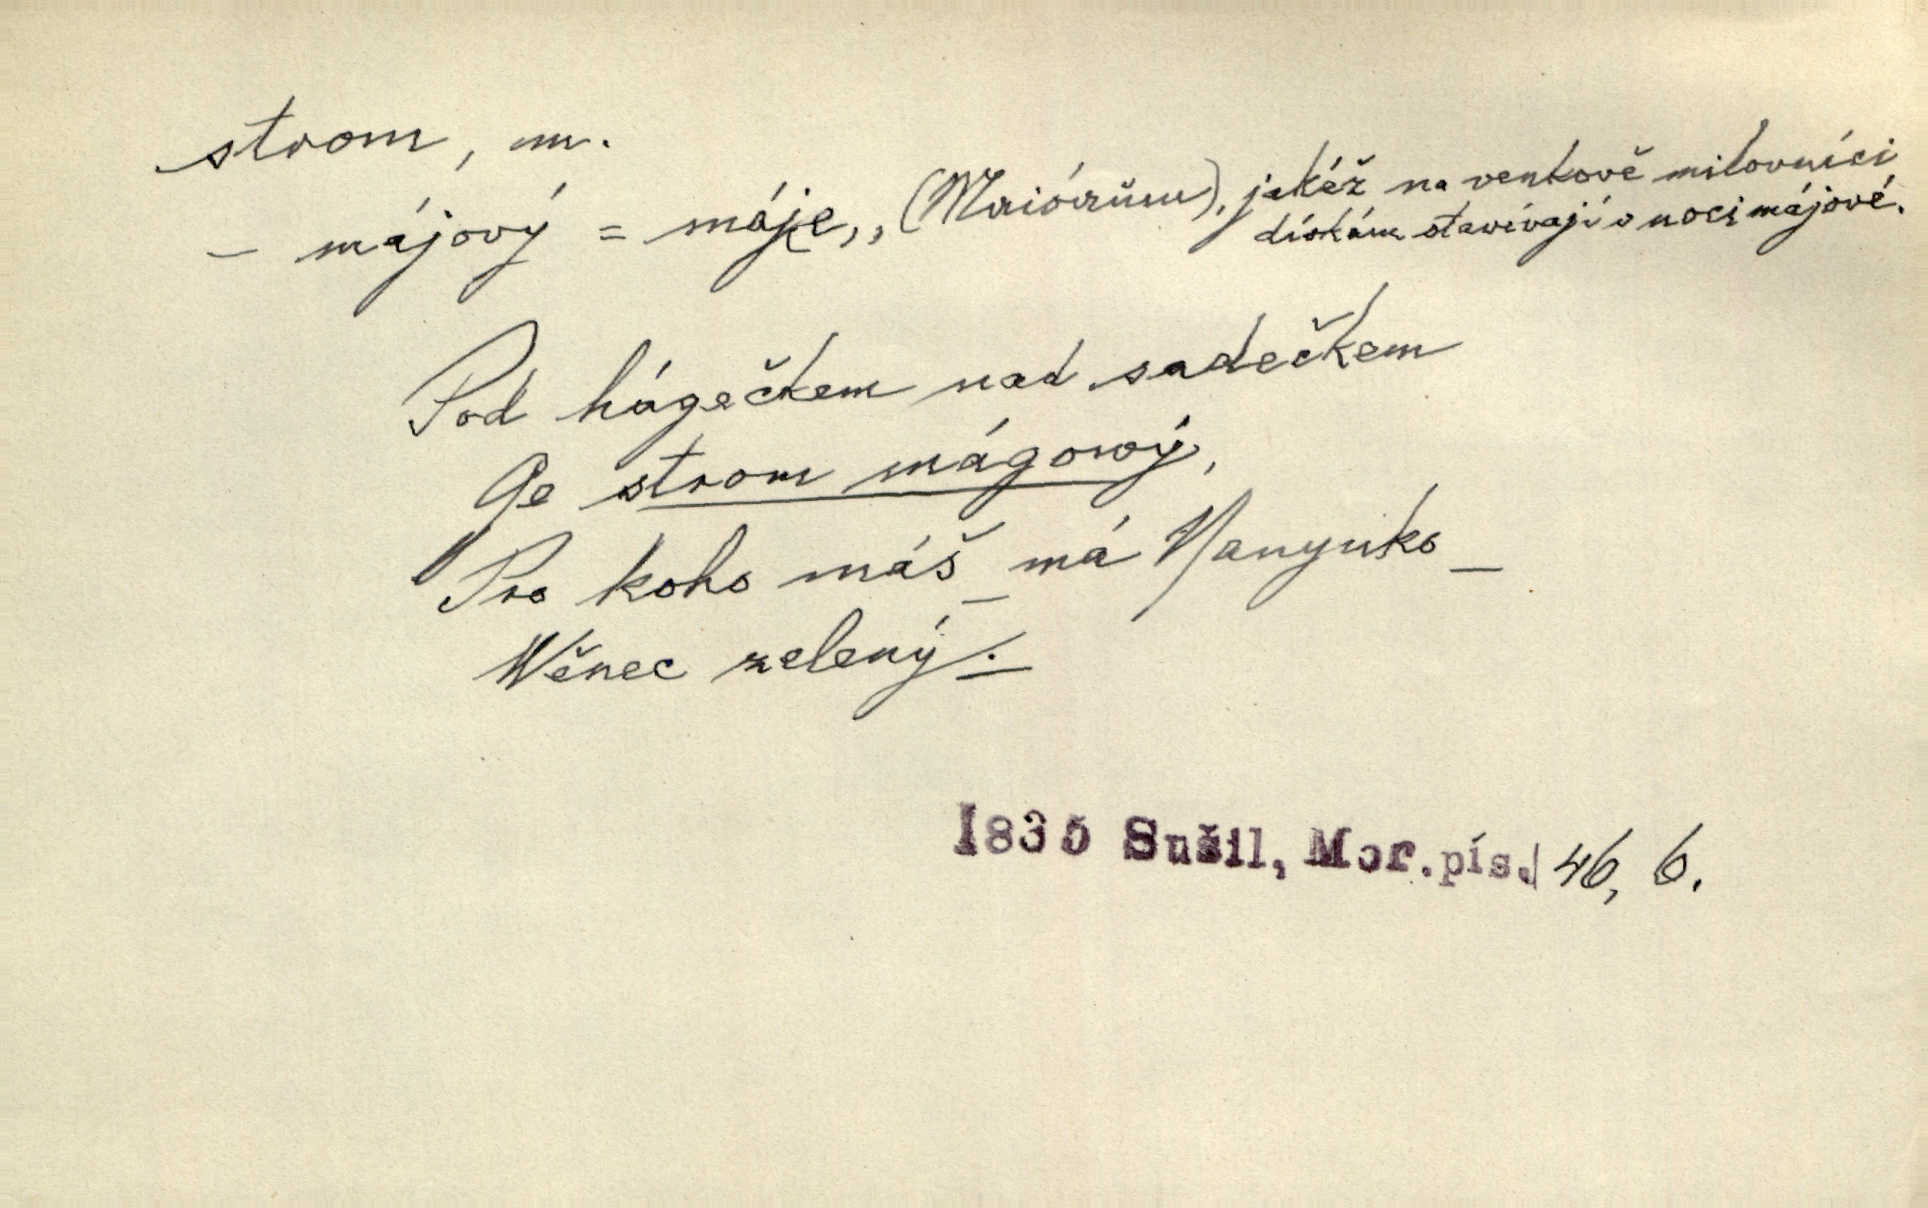 strom, m.
– májový = máje,, (Maiórům), jakéž na venkově milovníci
dívkám stavívají v noci májové.
Pod hágečkem nad sadečkem
Ge strom mágowý,
Pro koho máš – má Nanynko –
Wěnec zelený. –
1835 Sušil, Mor. pís. 46, 6.